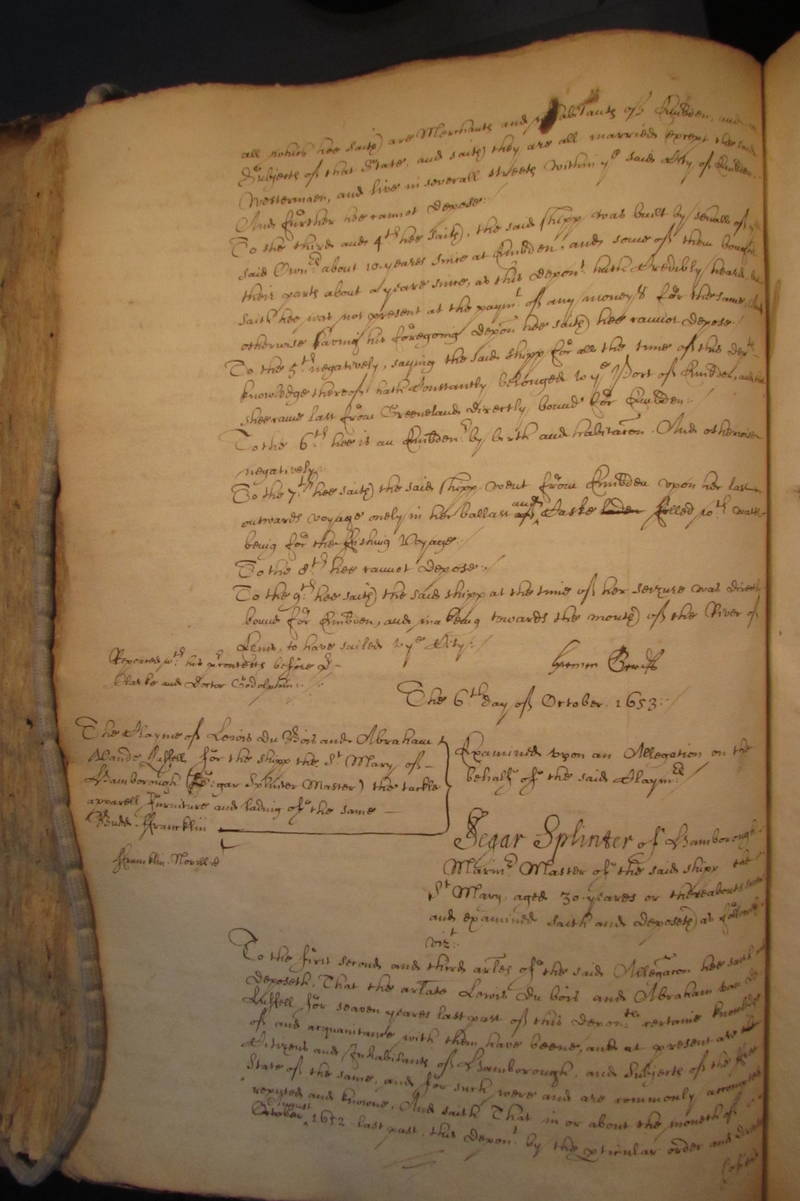 all which hee saith are Merchants and inhabitants of Embden, and
Subjects of that State, and saith they are all married except the said
Westerman, and live in severall streets within ye said City of Embden
And further hee cannot depose:
To the third and 4th hee saith, the said shipp was built by severall of ye
said Ownrs about 10 yeares since at Embden, and some of them bought
their parts about a yeare since, as this depont hath credibly heard, but
saith hee was not present at the paymt of any moneys for the same, And
otherwise saving his foregoing deposn hee saith hee cannot depose:/
To the 5th negatively, saying the said shipp for all the time of this depts
knowledge thereof hath constantly belonged to ye Port of Embden, and that
shee came last from Greeneland directly bound for Embden:/
To the 6th hee is an Embdenr by birth and habitacon. And otherwise
negatively:/
To the 7th hee saith the said shipp went from Embden upon her last
outwards voyage onely in her ballast and Caske laden filled wth water
being for the fishing Voyage:/
To the 8th hee cannot depose:/
To the 9th hee saith the said shipp at the time of her seizure was directly
bound for Embden, and making towards the mouth of the River of
Eems, to have sailed to ye City:/
Repeated wth his before Dr
Clarke and Doctor Godolphin:/
The 6th day of October. 1653:/
The Clayme of Lewis du Bois and Abraham
Vande Lussell for the shipp the St Mary of
Hamborough (Segar Splinter Master) the tackle
apparell furniture and lading of the same
Budd. Francklin
Examined upon an Allegation on the
behalfe of the said Claymrs:/
Francklin
Segar Splinter of Hamborough
Marinr Master of the said shipp the
St Mary, aged 30 yeares or thereabouts
and examined saith and deposeth as followeth
vizt:
To the first second and third arles of the said Allegacon hee saith and
deposeth, That the arlate Lewis du bois and Abraham van de
Lussell for seaven yeares last past of this deponts certaine knowledge
of and acquaintance with them, have beene, and at present are
Citizens and Inhabitants of Hamborough, and Subjects of the free
State of the same, and for such were and are commonly accompted
reputed and knowne. And saith That in or about the moneth of
October 1652 last past, this depont by the pticular order and